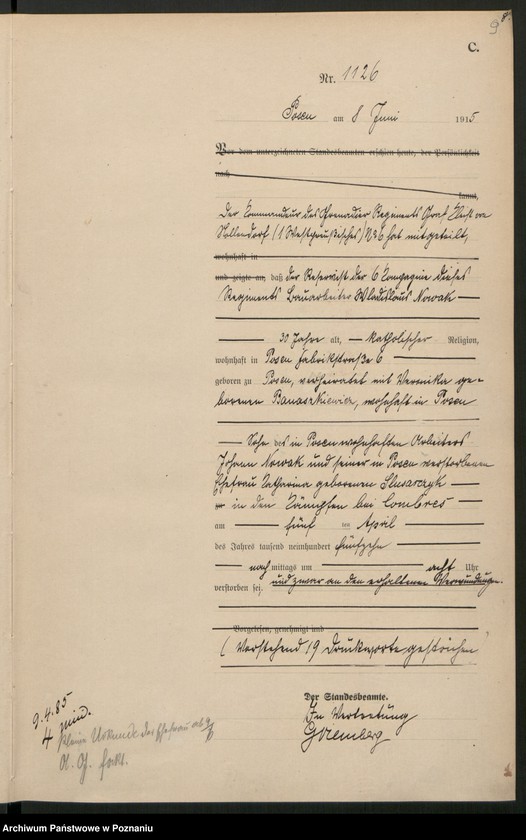 C.
Nr. 1126
Posen am 8 Juni 1915
Vor dem unterzeichneten Standesbeamten erschien heute, der Persönlichkeit
nach
kannt,
Der Kommandeur des Grenadier Regiments Graf Kleist von
Nollendorf (1 Westpreußisches) No 6 hat mitgeteilt,
wohnhaft in
und zeigte an, daß der Reservist der 6 Kompagnie dieses
Regiments Bauarbeiter Wladislaus Nowak
30 Jahre alt, katholischer Religion,
wohnhaft in Posen Fabrikstraße 6
geboren zu Posen, verheiratet mit Veronika ge-
borenen Banaszkiewicz, wohnhaft in Posen
Sohn des in Posen wohnhaften Arbeiters
Johann Nowak und seiner in Posen verstorbenen
Ehefrau Katharina geborenen Slusarczyk
in den Kämpfen bei Combres
am fünf ten April
des Jahres tausend neunhundert fünfzehn
nach mittags um acht Uhr
verstorben sei, und zwar an den erhaltenen Verwundungen.
Vorgelesen, genehmigt und
(Vorstehend 19 Druckworte gestrichen
Der Standesbeamte.
In Vertretung
9.4.85
4
Urkunde der Ehefrau
Archiwum Państwowe w Poznaniu